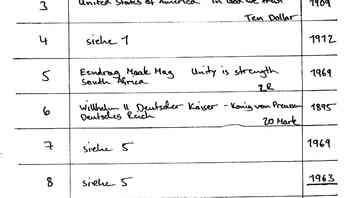 3 United States of America In God we trust 1909
Ten Dollar
4 siehe 1 1912
5 Eendrag Maak Mag Unity is strength 1969
South Africa 2R
6 Wilhelm II Deutscher Kaiser - König von Preussen 1895
Deutsches Reich 20 Mark
7 siehe 5 1969
8 siehe 5 1963